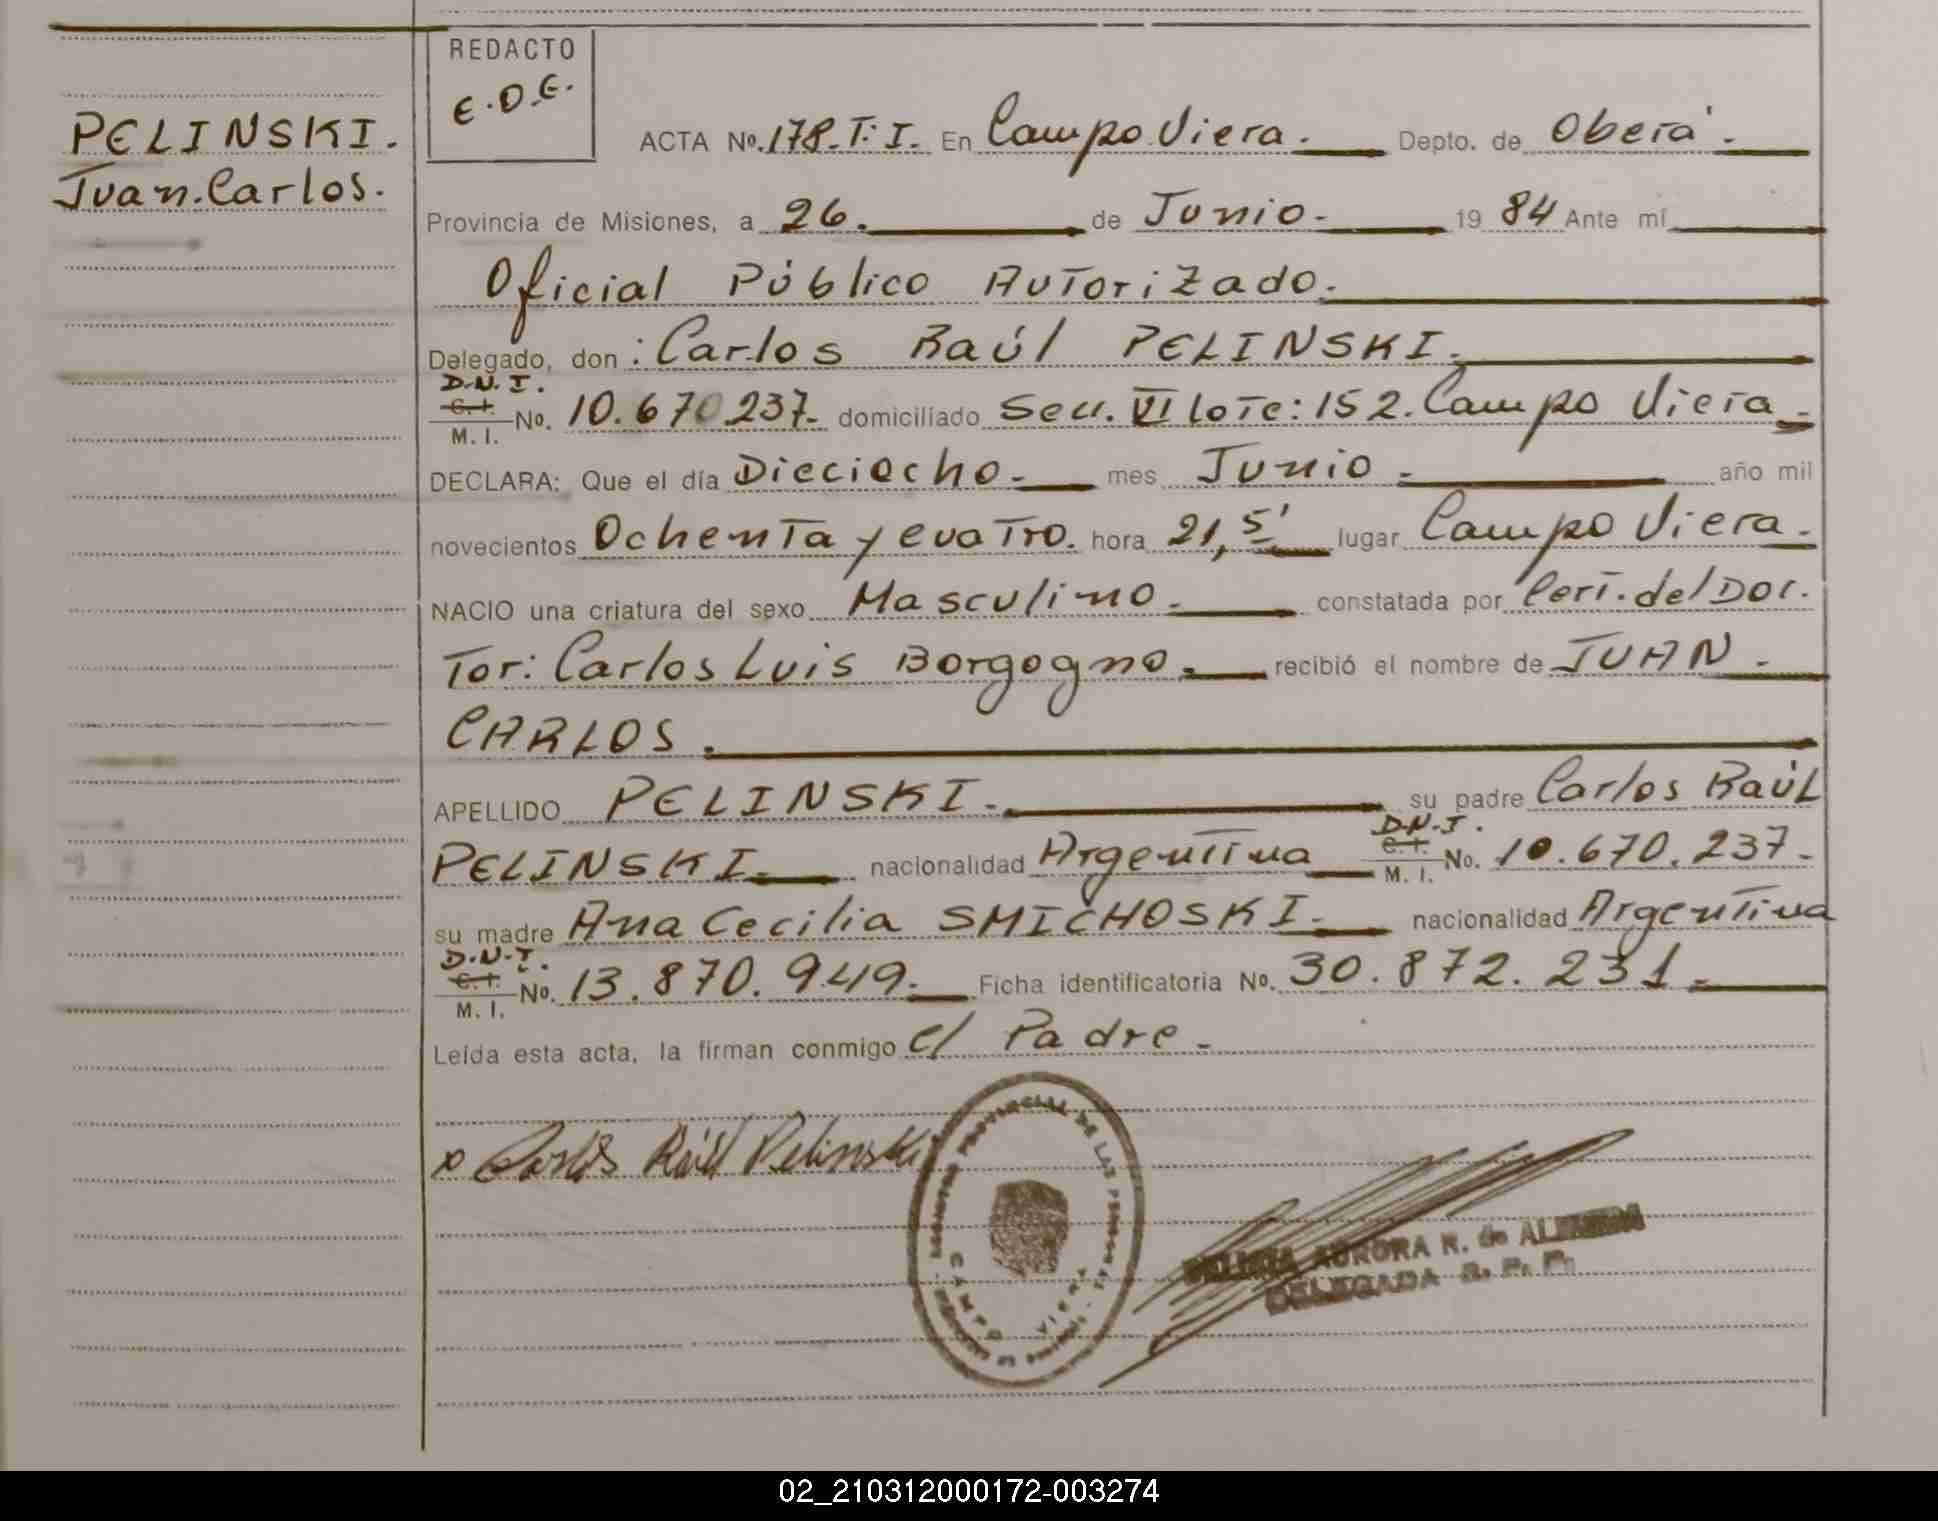 REDACTO
E.D.E.
PELINSKI.
Juan.Carlos.
ACTA No. 178.T.I. En Campo Viera. Depto. de Oberá.
Provincia de Misiones, a 26. de Junio. 19 84 Ante mí
Oficial Público Autorizado.
Delegado, don: Carlos Raúl PELINSKI.
D.N.I.
C.I.
M. I. No. 10.670.237. domiciliado Secc. VI lote: 152. Campo Viera.
DECLARA: Que el día Dieciocho. mes Junio. año mil
novecientos Ochenta y cuatro. hora 21,5' lugar Campo Viera.
NACIO una criatura del sexo Masculino. constatada por Cert. del Doc.
Tor: Carlos Luis Borgogno. recibió el nombre de JUAN.
CARLOS.
APELLIDO PELINSKI. su padre Carlos Raúl
PELINSKI. nacionalidad Argentina D.N.I. C.I. M. I. No. 10.670.237.
su madre Ana Cecilia SMICHOSKI. nacionalidad Argentina
D.N.I.
C.I.
M. I. No. 13.870.949. Ficha identificatoria No. 30.872.231.
Leída esta acta, la firman conmigo el Padre.
x Carlos Raúl Pelinski
PROVINCIAL DE LAS PERSONAS
CAMPO VIERA
AURORA R. de
DELEGADA R. P. P.
02_210312000172-003274